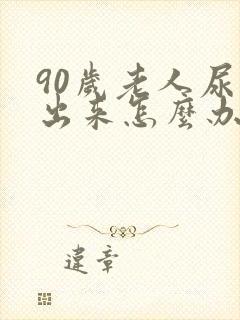 90歲老人尿
出来怎麼办
違章